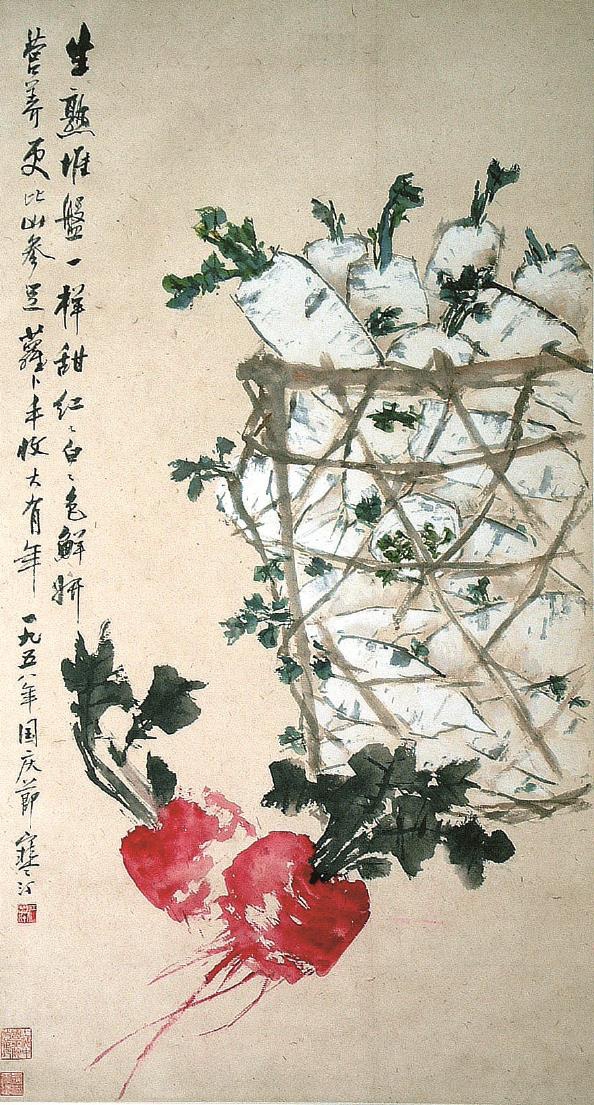 生熟堆盤一样甜红〻白〻色鮮妍
营养更比山参足蘿卜丰收大有年 一九五八年国庆節 寒汀